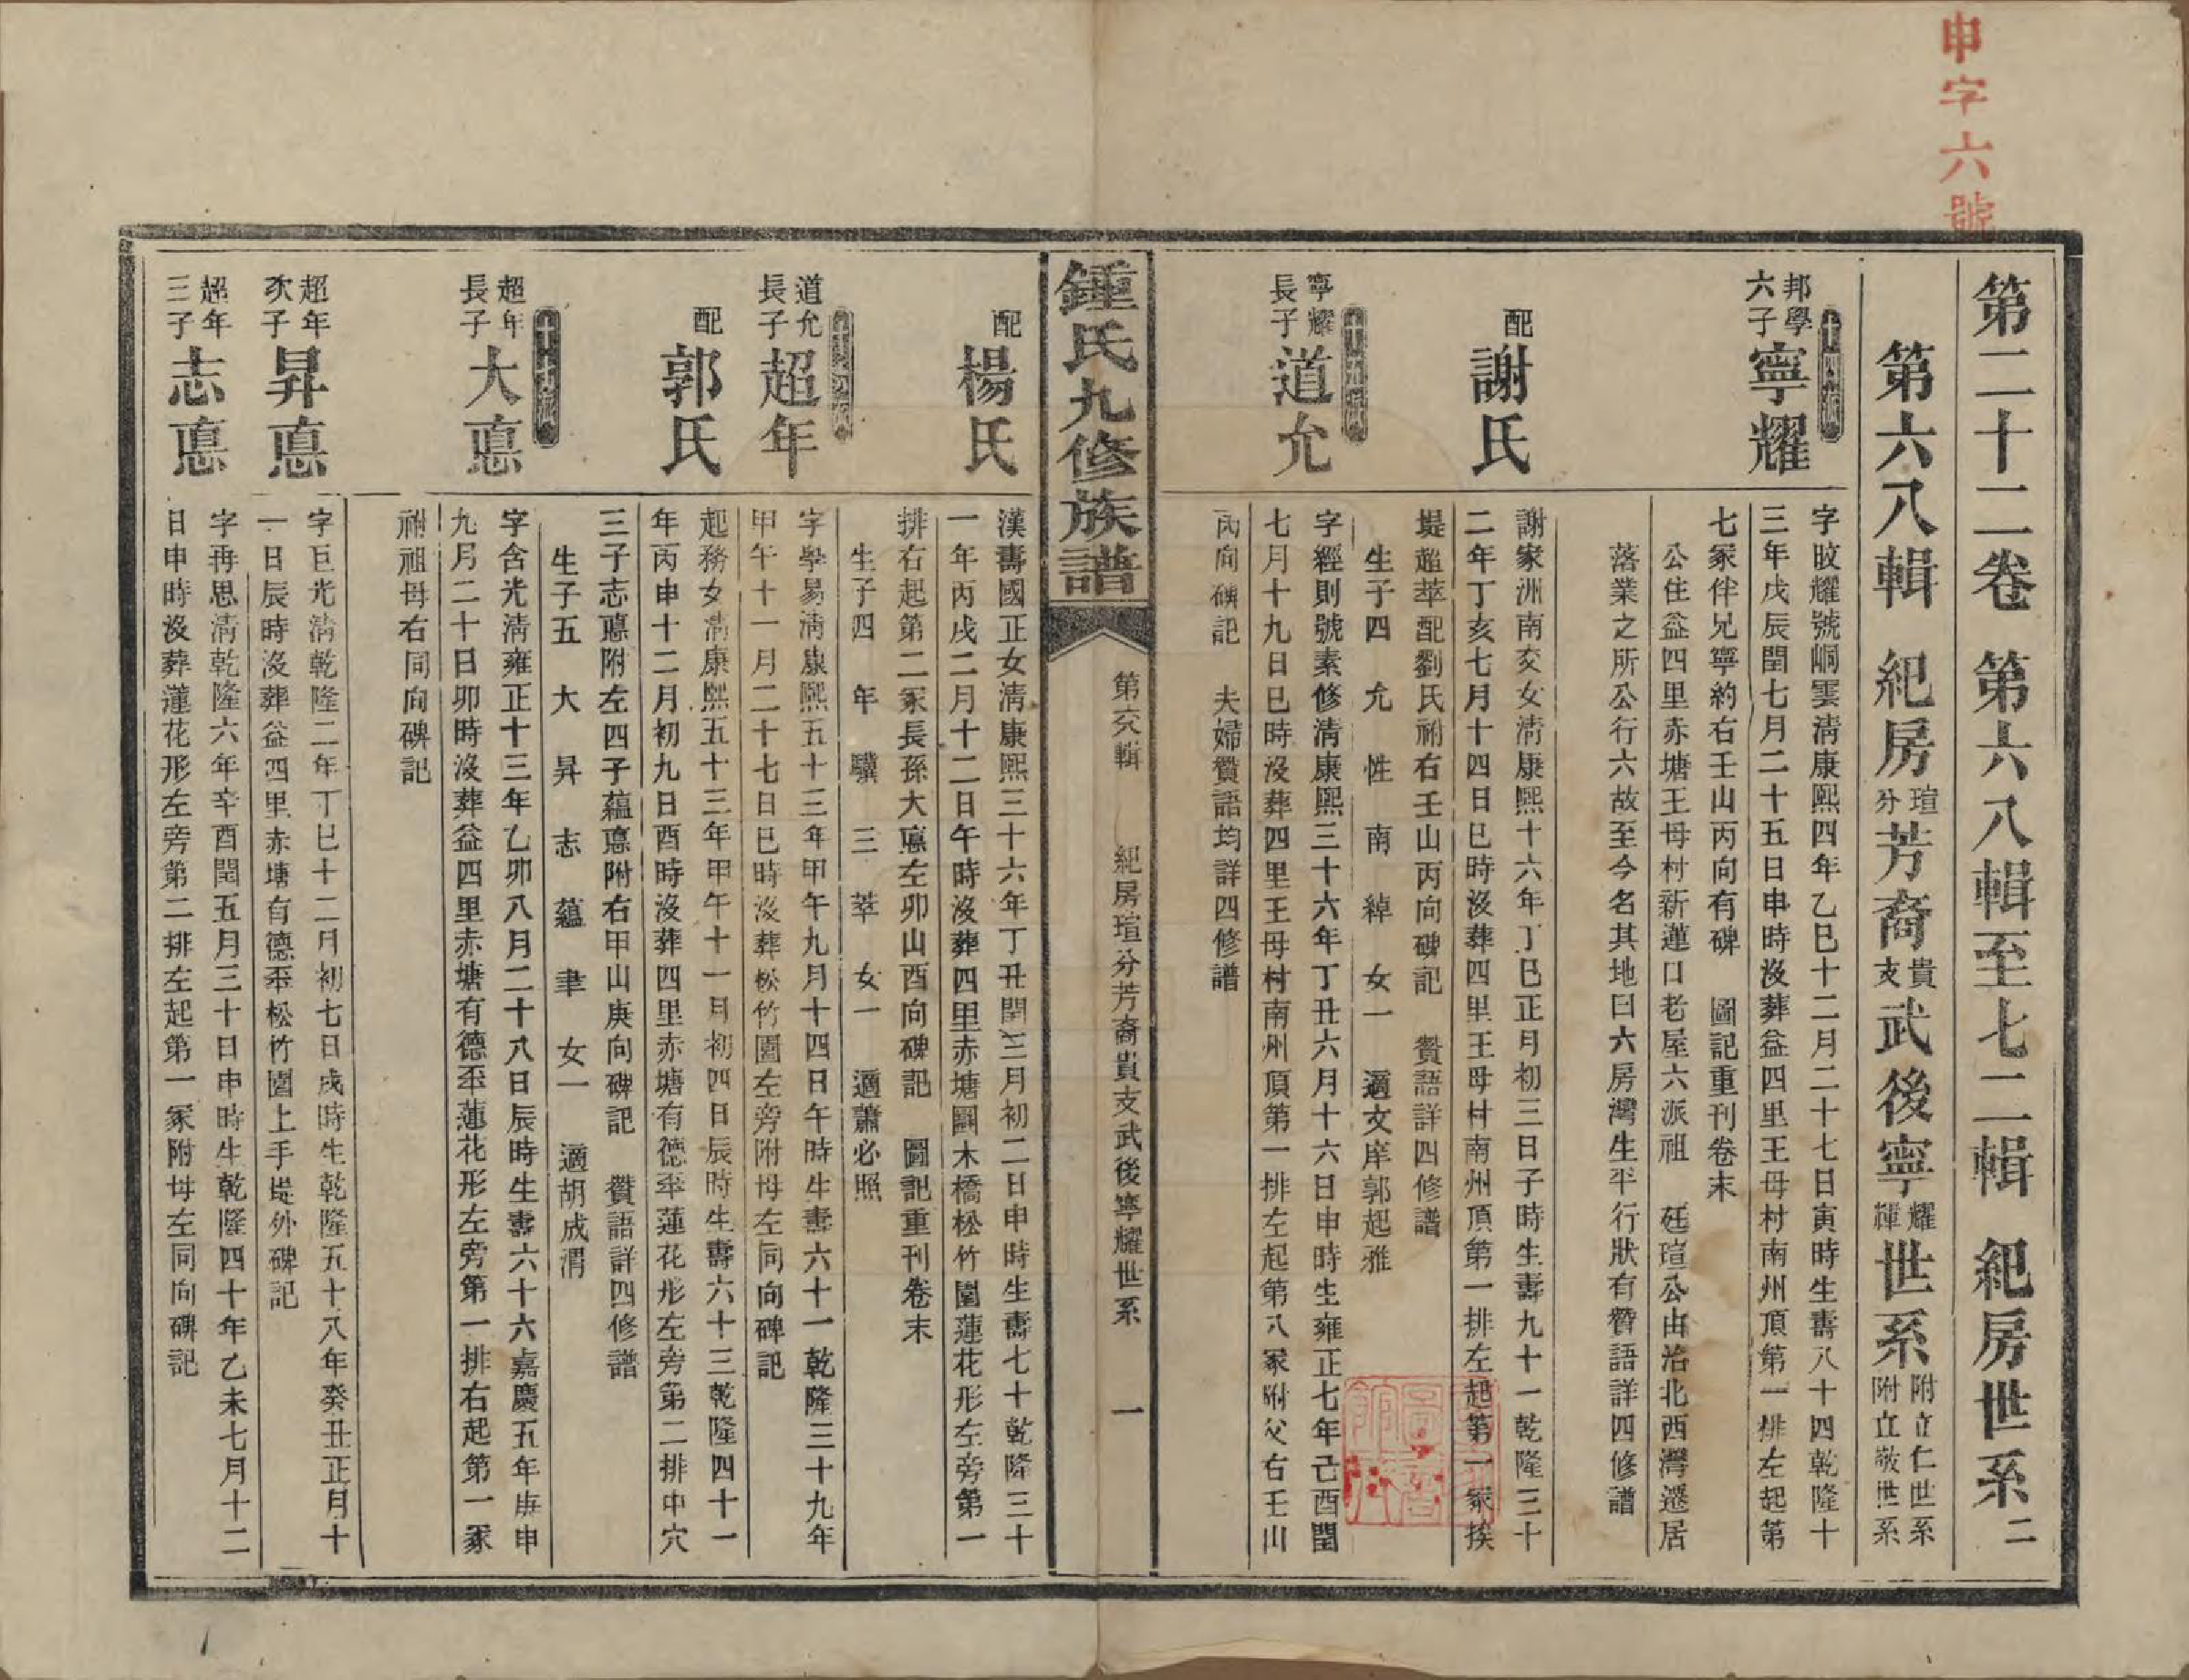 申字六號
第二十二卷 第六八輯至七二輯 紀房世系二
第六八輯 紀房瑄分芳裔貴支武後寧耀輝世系附立仁世系附立敬世系
十四派
邦學六子寧耀
字旼耀號峒雲淸康熙四年乙巳十二月二十七日寅時生壽八十四乾隆十
三年戊辰閏七月二十五日申時沒葬益四里王母村南州頂第一排左起第
七冢伴兄寧約右壬山丙向有碑 圖記重刊卷末
公住益四里赤塘王母村新蓮口老屋六派祖 廷瑄公由治北西灣遷居
落業之所公行六故至今名其地曰六房灣生平行狀有贊語詳四修譜
配謝氏
謝家洲南交女淸康熙十六年丁巳正月初三日子時生壽九十一乾隆三十
二年丁亥七月十四日巳時沒葬四里王母村南州頂第一排左起第一冢挨
堤超萃配劉氏祔右壬山丙向碑記 贊語詳四修譜
生子四 允 性 南 綽 女一 適文岸郭起雅
十五派
寧耀長子道允
字經則號素修淸康熙三十六年丁丑六月十六日申時生雍正七年己酉閏
七月十九日巳時沒葬四里王母村南州頂第一排左起第八冢附父右壬山
丙向碑記 夫婦贊語均詳四修譜
鍾氏九修族譜
第六輯 紀房瑄分芳裔貴支武後寧耀世系 一
配楊氏
漢壽國正女淸康熙三十六年丁丑閏三月初二日申時生壽七十乾隆三十
一年丙戌二月十二日午時沒葬四里赤塘圓木橋松竹園蓮花形左旁第一
排右起第二冢長孫大悳左卯山酉向碑記 圖記重刊卷末
生子四 年 驥 三 萃 女一 適蕭必照
道允長子超年
字學易淸康熙五十三年甲午九月十四日午時生壽六十一乾隆三十九年
甲午十一月二十七日巳時沒葬松竹園左旁附母左同向碑記
配郭氏
起務女淸康熙五十三年甲午十一月初四日辰時生壽六十三乾隆四十一
年丙申十二月初九日酉時沒葬四里赤塘有德垂蓮花形左旁第二排中穴
三子志悳附左四子蘊悳附右甲山庚向碑記 贊語詳四修譜
生子五 大 昇 志 蘊 聿 女一 適胡成渭
超年長子大悳
字含光淸雍正十三年乙卯八月二十八日辰時生壽六十六嘉慶五年庚申
九月二十日卯時沒葬益四里赤塘有德垂蓮花形左旁第一排右起第一冢
祔祖母右同向碑記
超年次子昇悳
字巨光淸乾隆二年丁巳十二月初七日戌時生乾隆五十八年癸丑正月十
一日辰時沒葬益四里赤塘有德垂松竹園上手堤外碑記
超年三子志悳
字再思淸乾隆六年辛酉閏五月三十日申時生乾隆四十年乙未七月十二
日申時沒葬蓮花形左旁第二排左起第一冢附母左同向碑記